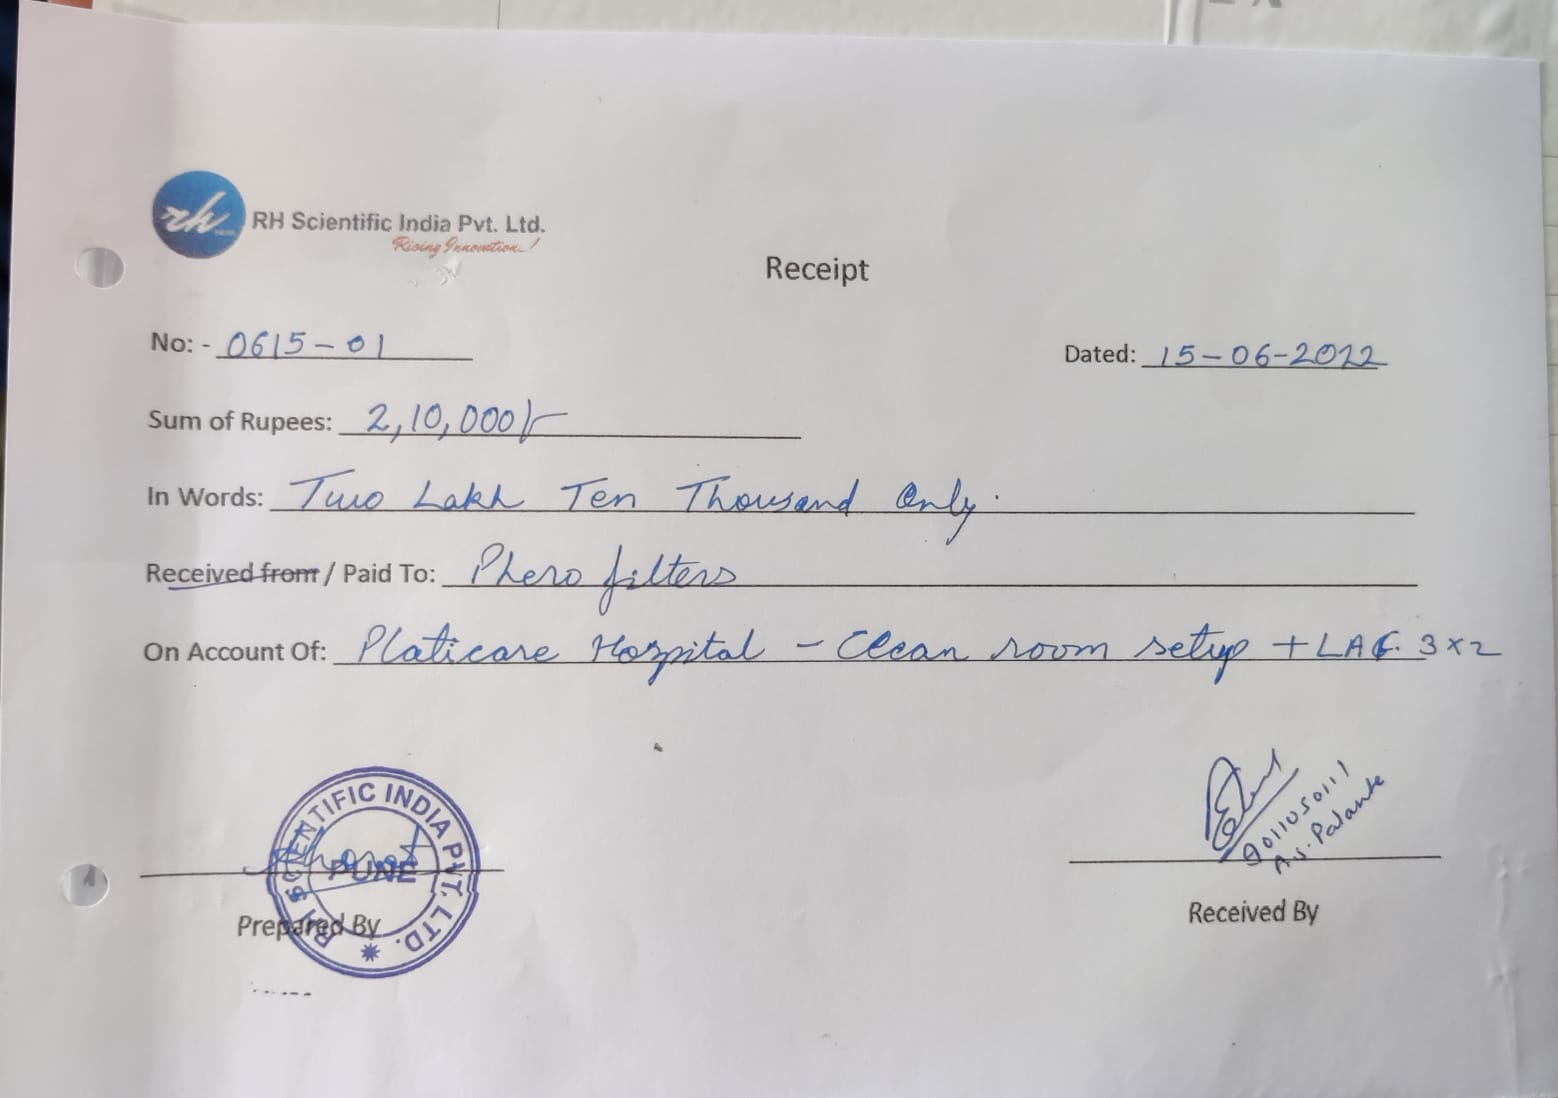 rh
RH Scientific India Pvt. Ltd.
Rising Innovation..!
Receipt
No: - 0615-01
Dated: 15-06-2022
Sum of Rupees: 2,10,000/-
In Words: Two Lakh Ten Thousand Only.
Received from / Paid To: Phero filters
On Account Of: Platicare Hospital - Clean room setup + LAF. 3x2
RH SCIENTIFIC INDIA PVT. LTD.
PUNE
Prepared By
9011050111
A.S. Palante
Received By